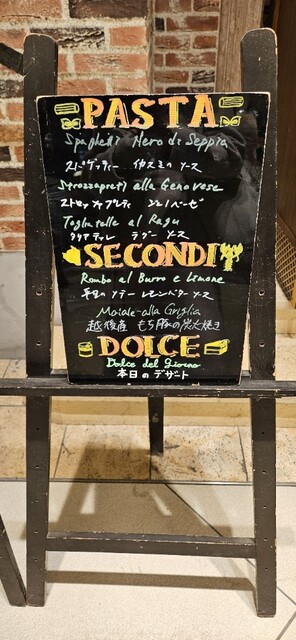 PASTA
Spaghetti Nero di Seppia
スパゲッティー イカスミのソース
Strozzapreti alla Genovese
ストロッツァプレティ ジェノベーゼ
Tagliatelle al Ragu
タリアテッレ ラグーソース
SECONDI
Rombo al Burro e Limone
平目のソテー レモンバターソース
Maiale alla Griglia
越後産 もち豚の炭火焼き
DOLCE
Dolce del Giorno
本日のデザート